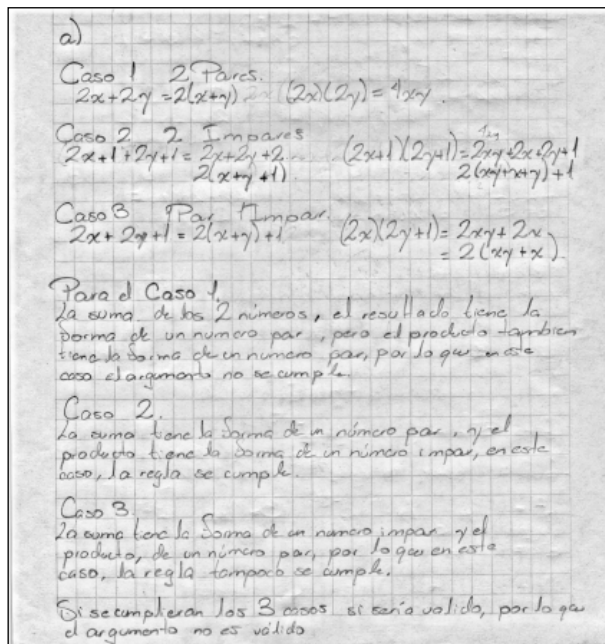 a)
Caso 1 2 Pares.
2x+2y = 2(x+y) 2x (2x)(2y) = 4xy
Caso 2 2 Impares
2x+1+2y+1 = 2x+2y+2 (2x+1)(2y+1) = 2xy+2x+2y+1
2(x+y+1) 2(xy+x+y)+1
Caso 3 1Par 1Impar.
2x+2y+1 = 2(x+y)+1 (2x)(2y+1) = 2xy+2x
= 2(xy+x)
Para el Caso 1.
La suma de los 2 números, el resultado tiene la
forma de un numero par, pero el producto tambien
tiene la forma de un numero par, por lo que en este
caso el argumento no se cumple.
Caso 2.
La suma tiene la forma de un número par, y el
producto tiene la forma de un número impar, en este
caso, la regla se cumple.
Caso 3.
La suma tiene la forma de un numero impar y el
producto, de un número par, por lo que en este
caso, la regla tampoco se cumple.
Si se cumplieran los 3 casos si seria valido, por lo que
el argumento no es válido